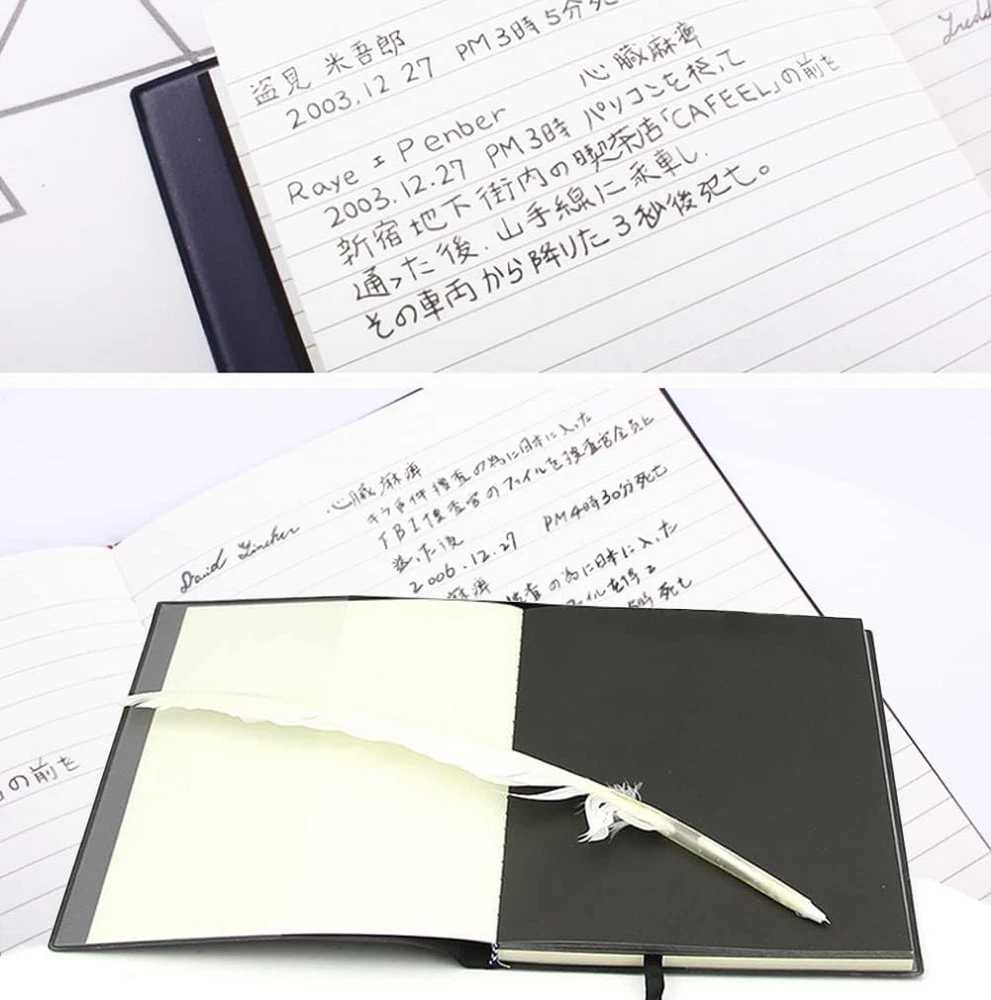 盗見 米吾郎
2003.12 27 PM3時5分死
心臓麻痺
Raye I Penber
2003.12.27 PM3時 パソコンを
新宿地下街内の喫茶店「CAFEEL」の前を
通った後、山手線に乗車し、
その車両から降りた3秒後死亡。
心臓麻痺
キラ事件捜査の為に日本に入った
FBI捜査官のファイルを捜査官全員
た後
2006.12.27 PM4時30分死亡
麻痺
捜査の為に日本に入った
ファイルを得
時死亡
の前を